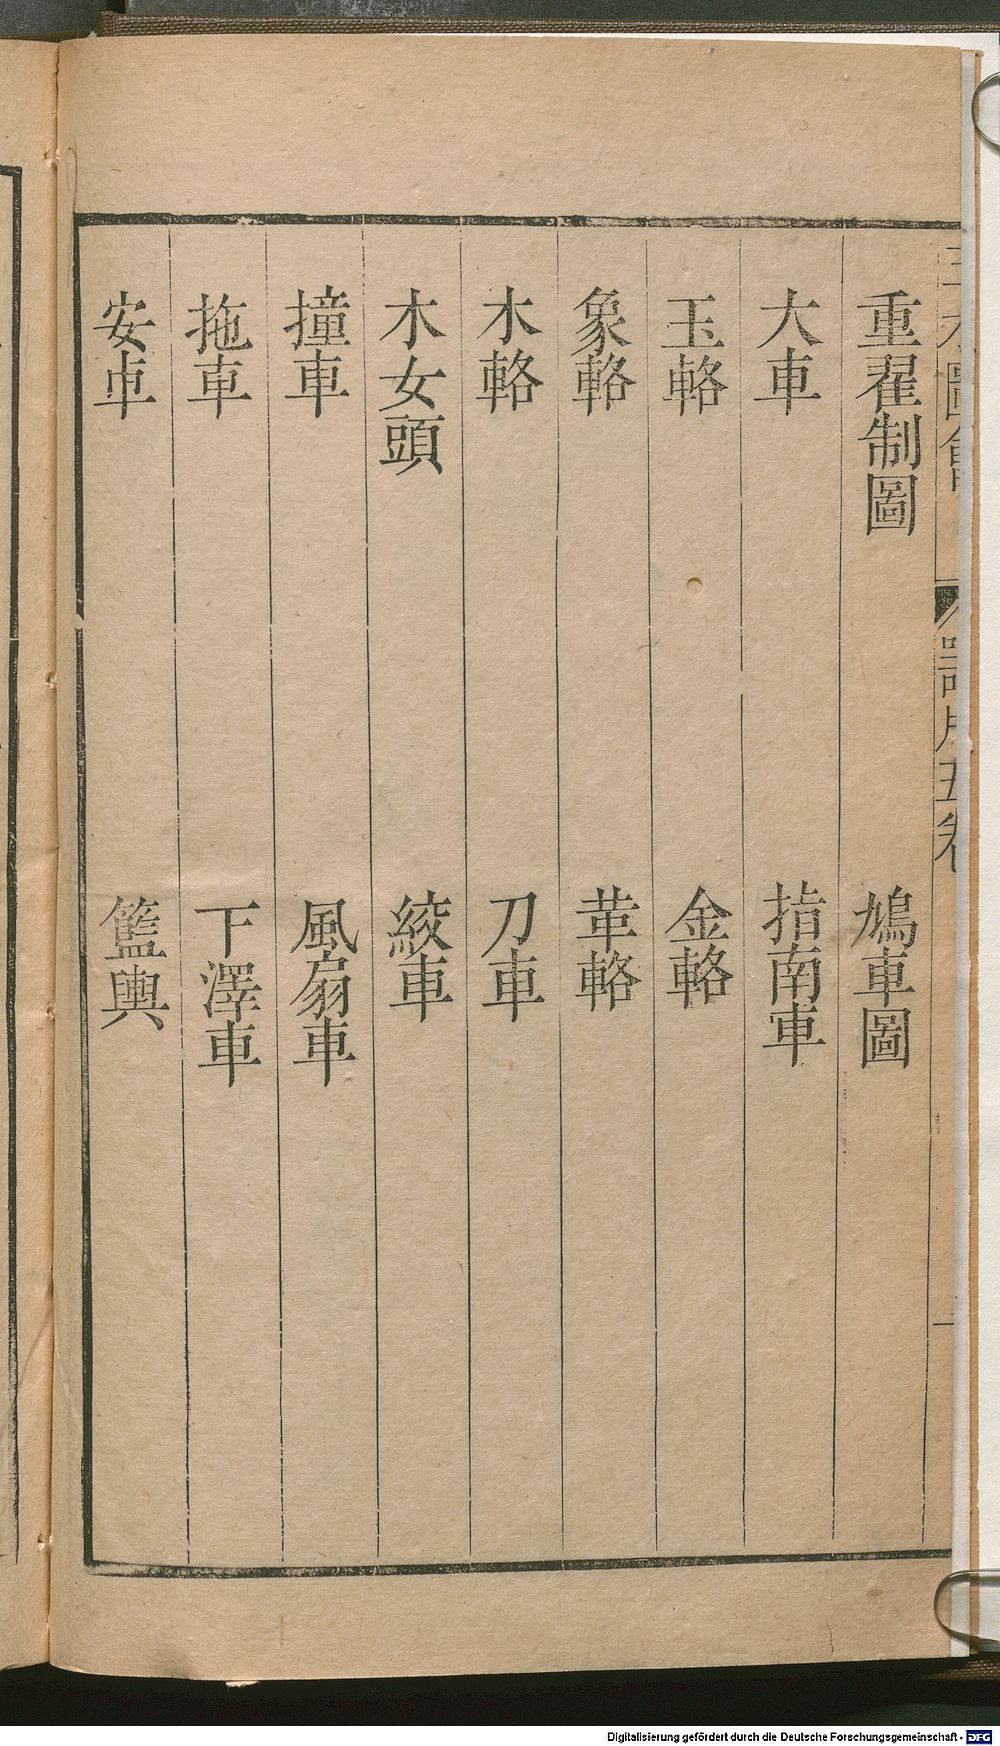 重翟制圖　鳩車圖
大車　指南車
玉輅　金輅
象輅　革輅
木輅　刀車
木女頭　絞車
撞車　風扇車
拖車　下澤車
安車　籃輿
Digitalisierung gefördert durch die Deutsche Forschungsgemeinschaft - DFG